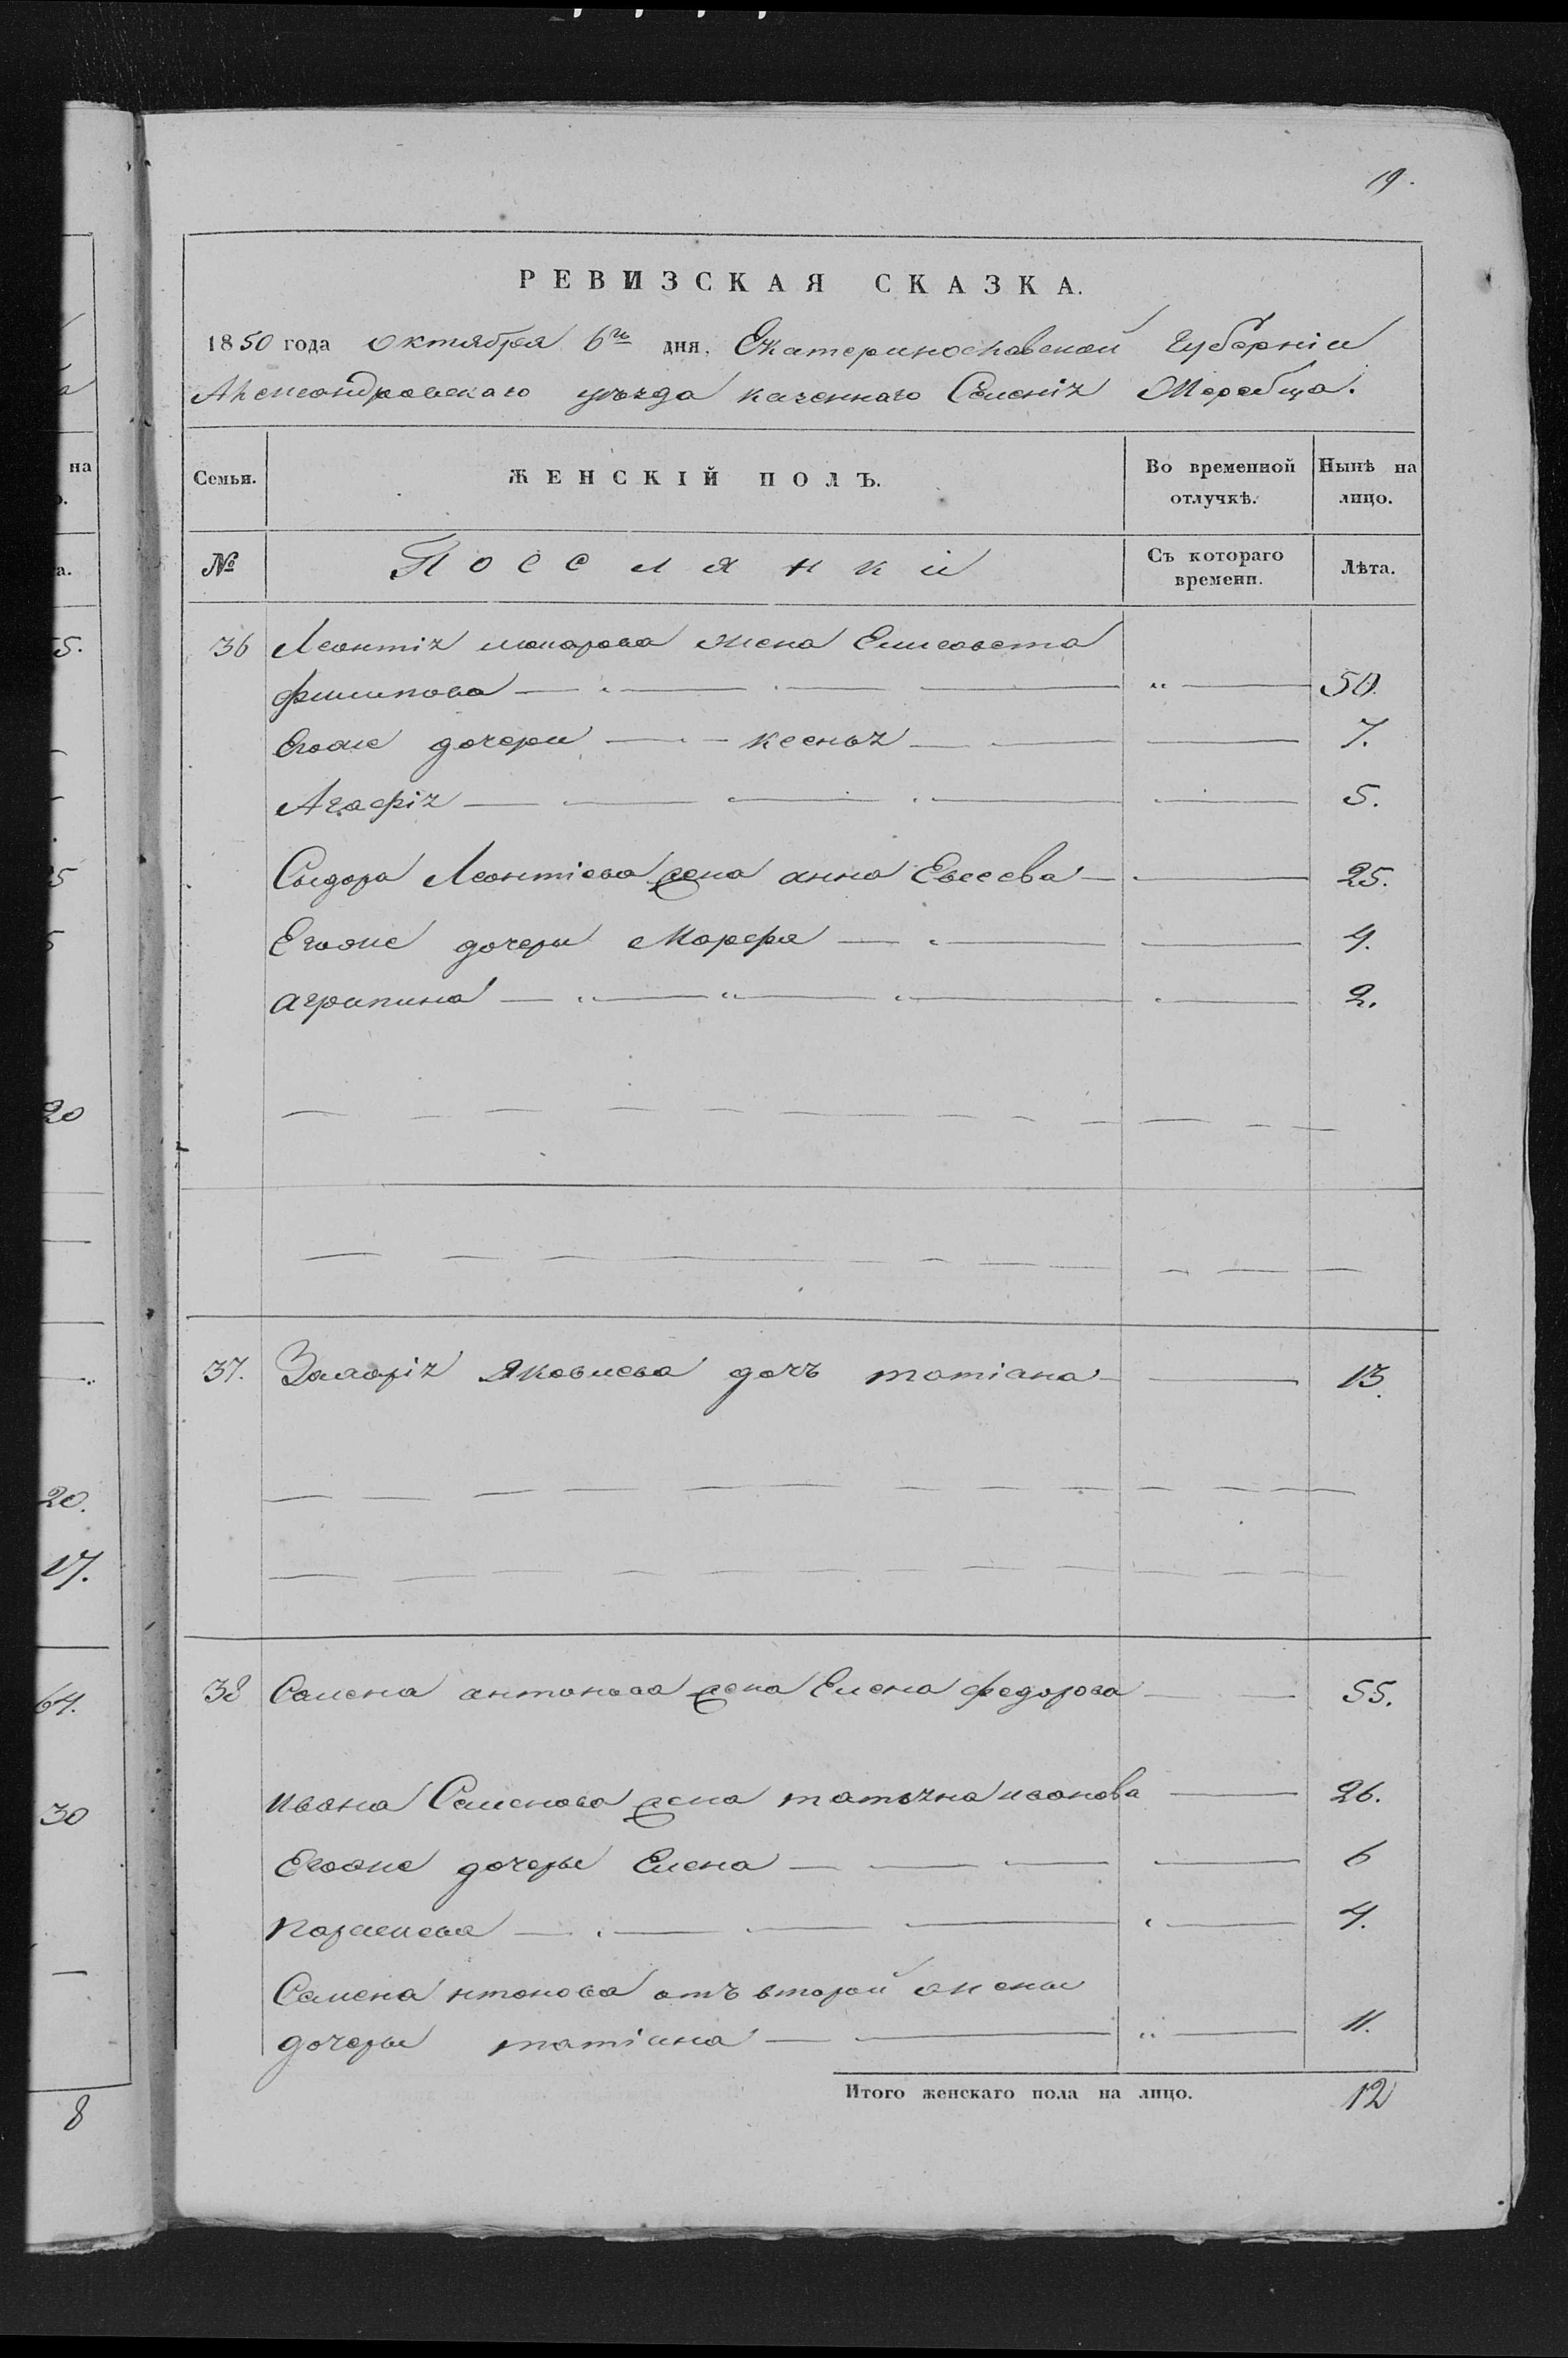 19.
РЕВИЗСКАЯ СКАЗКА.
1850 года октября 6го дня, Екатеринославской Губерніи
Александровскаго уѣзда казеннаго Селенія Жеребца.
Семьи. ЖЕНСКІЙ ПОЛЪ. Во временной отлучкѣ. Нынѣ на лицо.
№ Поселянки Съ котораго времени. Лѣта.
36 Леонтія макарова жена Елисавета
филипова — — — — „ — 50.
Егоже дочери — — ксенья — — — 7.
Агафія — — — — — 5.
Сидора Леонтіева жена анна Евсеева — — 25.
Егоже дочери Марфа — — — 4.
агрипина — „ — „ — „ — — 2.
37. Захарія Яковлева дочъ татіана — — 13.
38 Семена антонова жена Елена федорова — — 55.
ивана Семенова жена татьяна иванова — 26.
Егоже дочеры Елена — — — — 6
параскева — — — — — 4.
Семена нтонова отъ второй жены
дочеры татіана — — „ — 11.
Итого женскаго пола на лицо. 12
на
а.
5.
25
5
20
20.
17.
64.
30
8